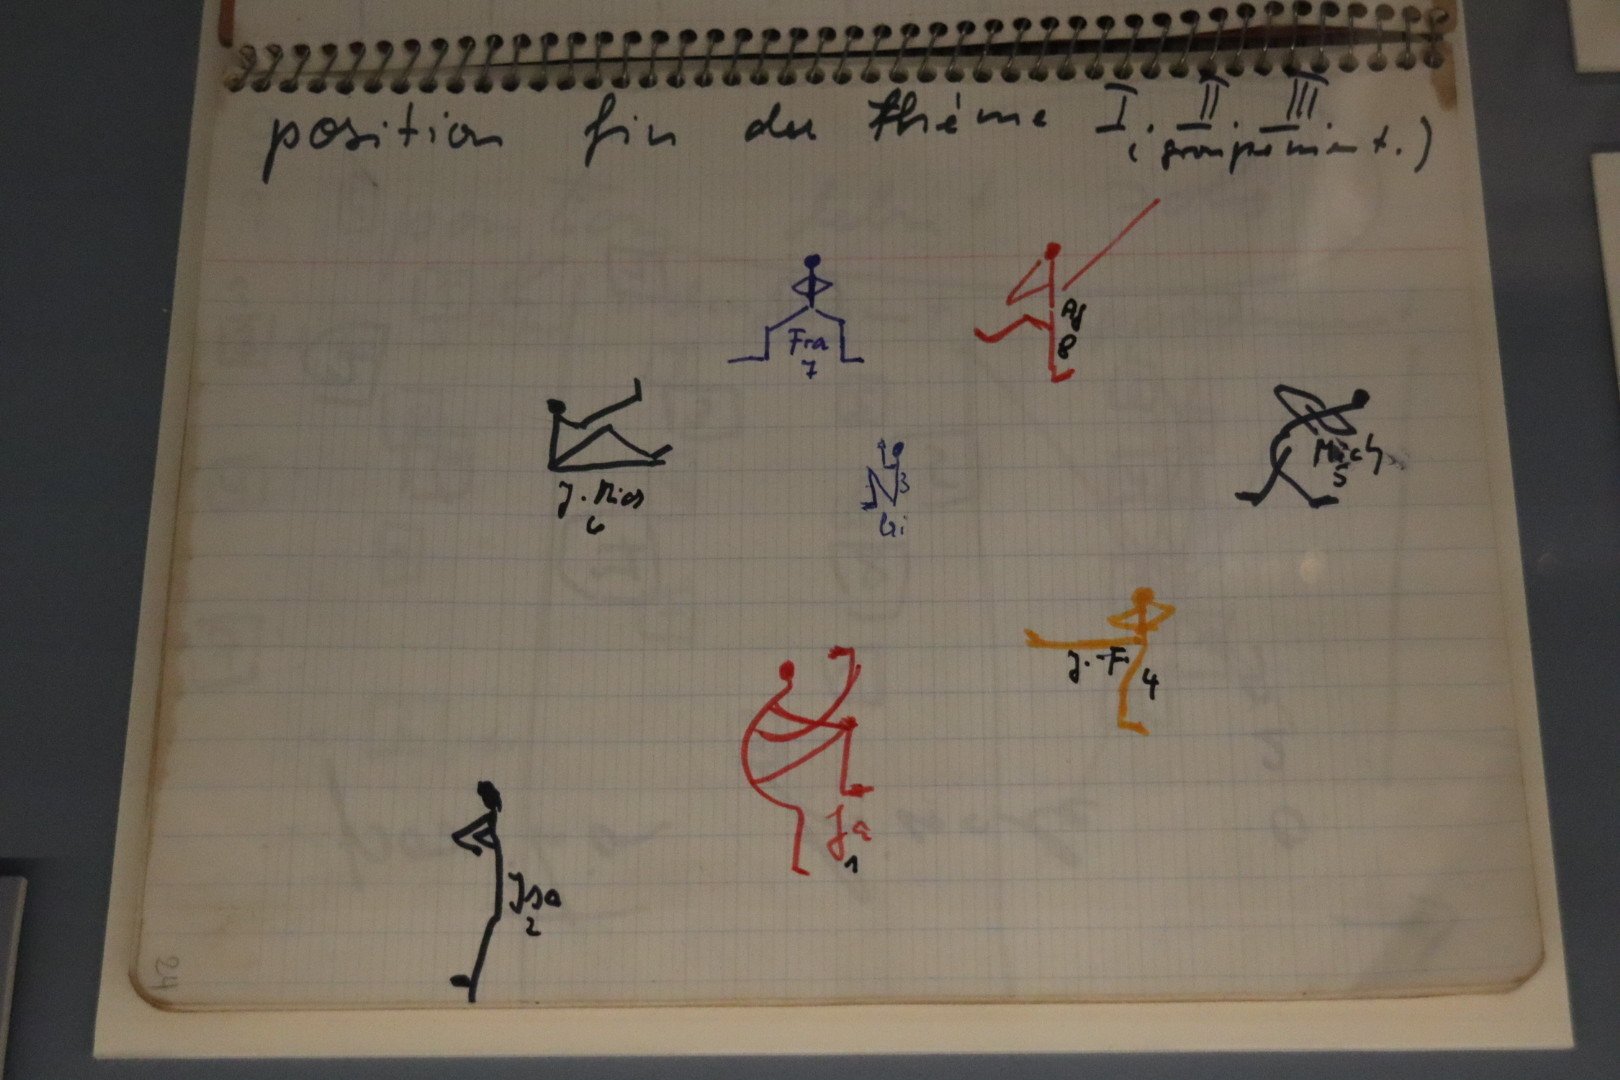 position fin du thème I. II. III.
(groupement.)
Fra
7
8
J. Nico
6
3
Gi
Mich
5
J.-F.
4
Ja
1
Isa
2
24